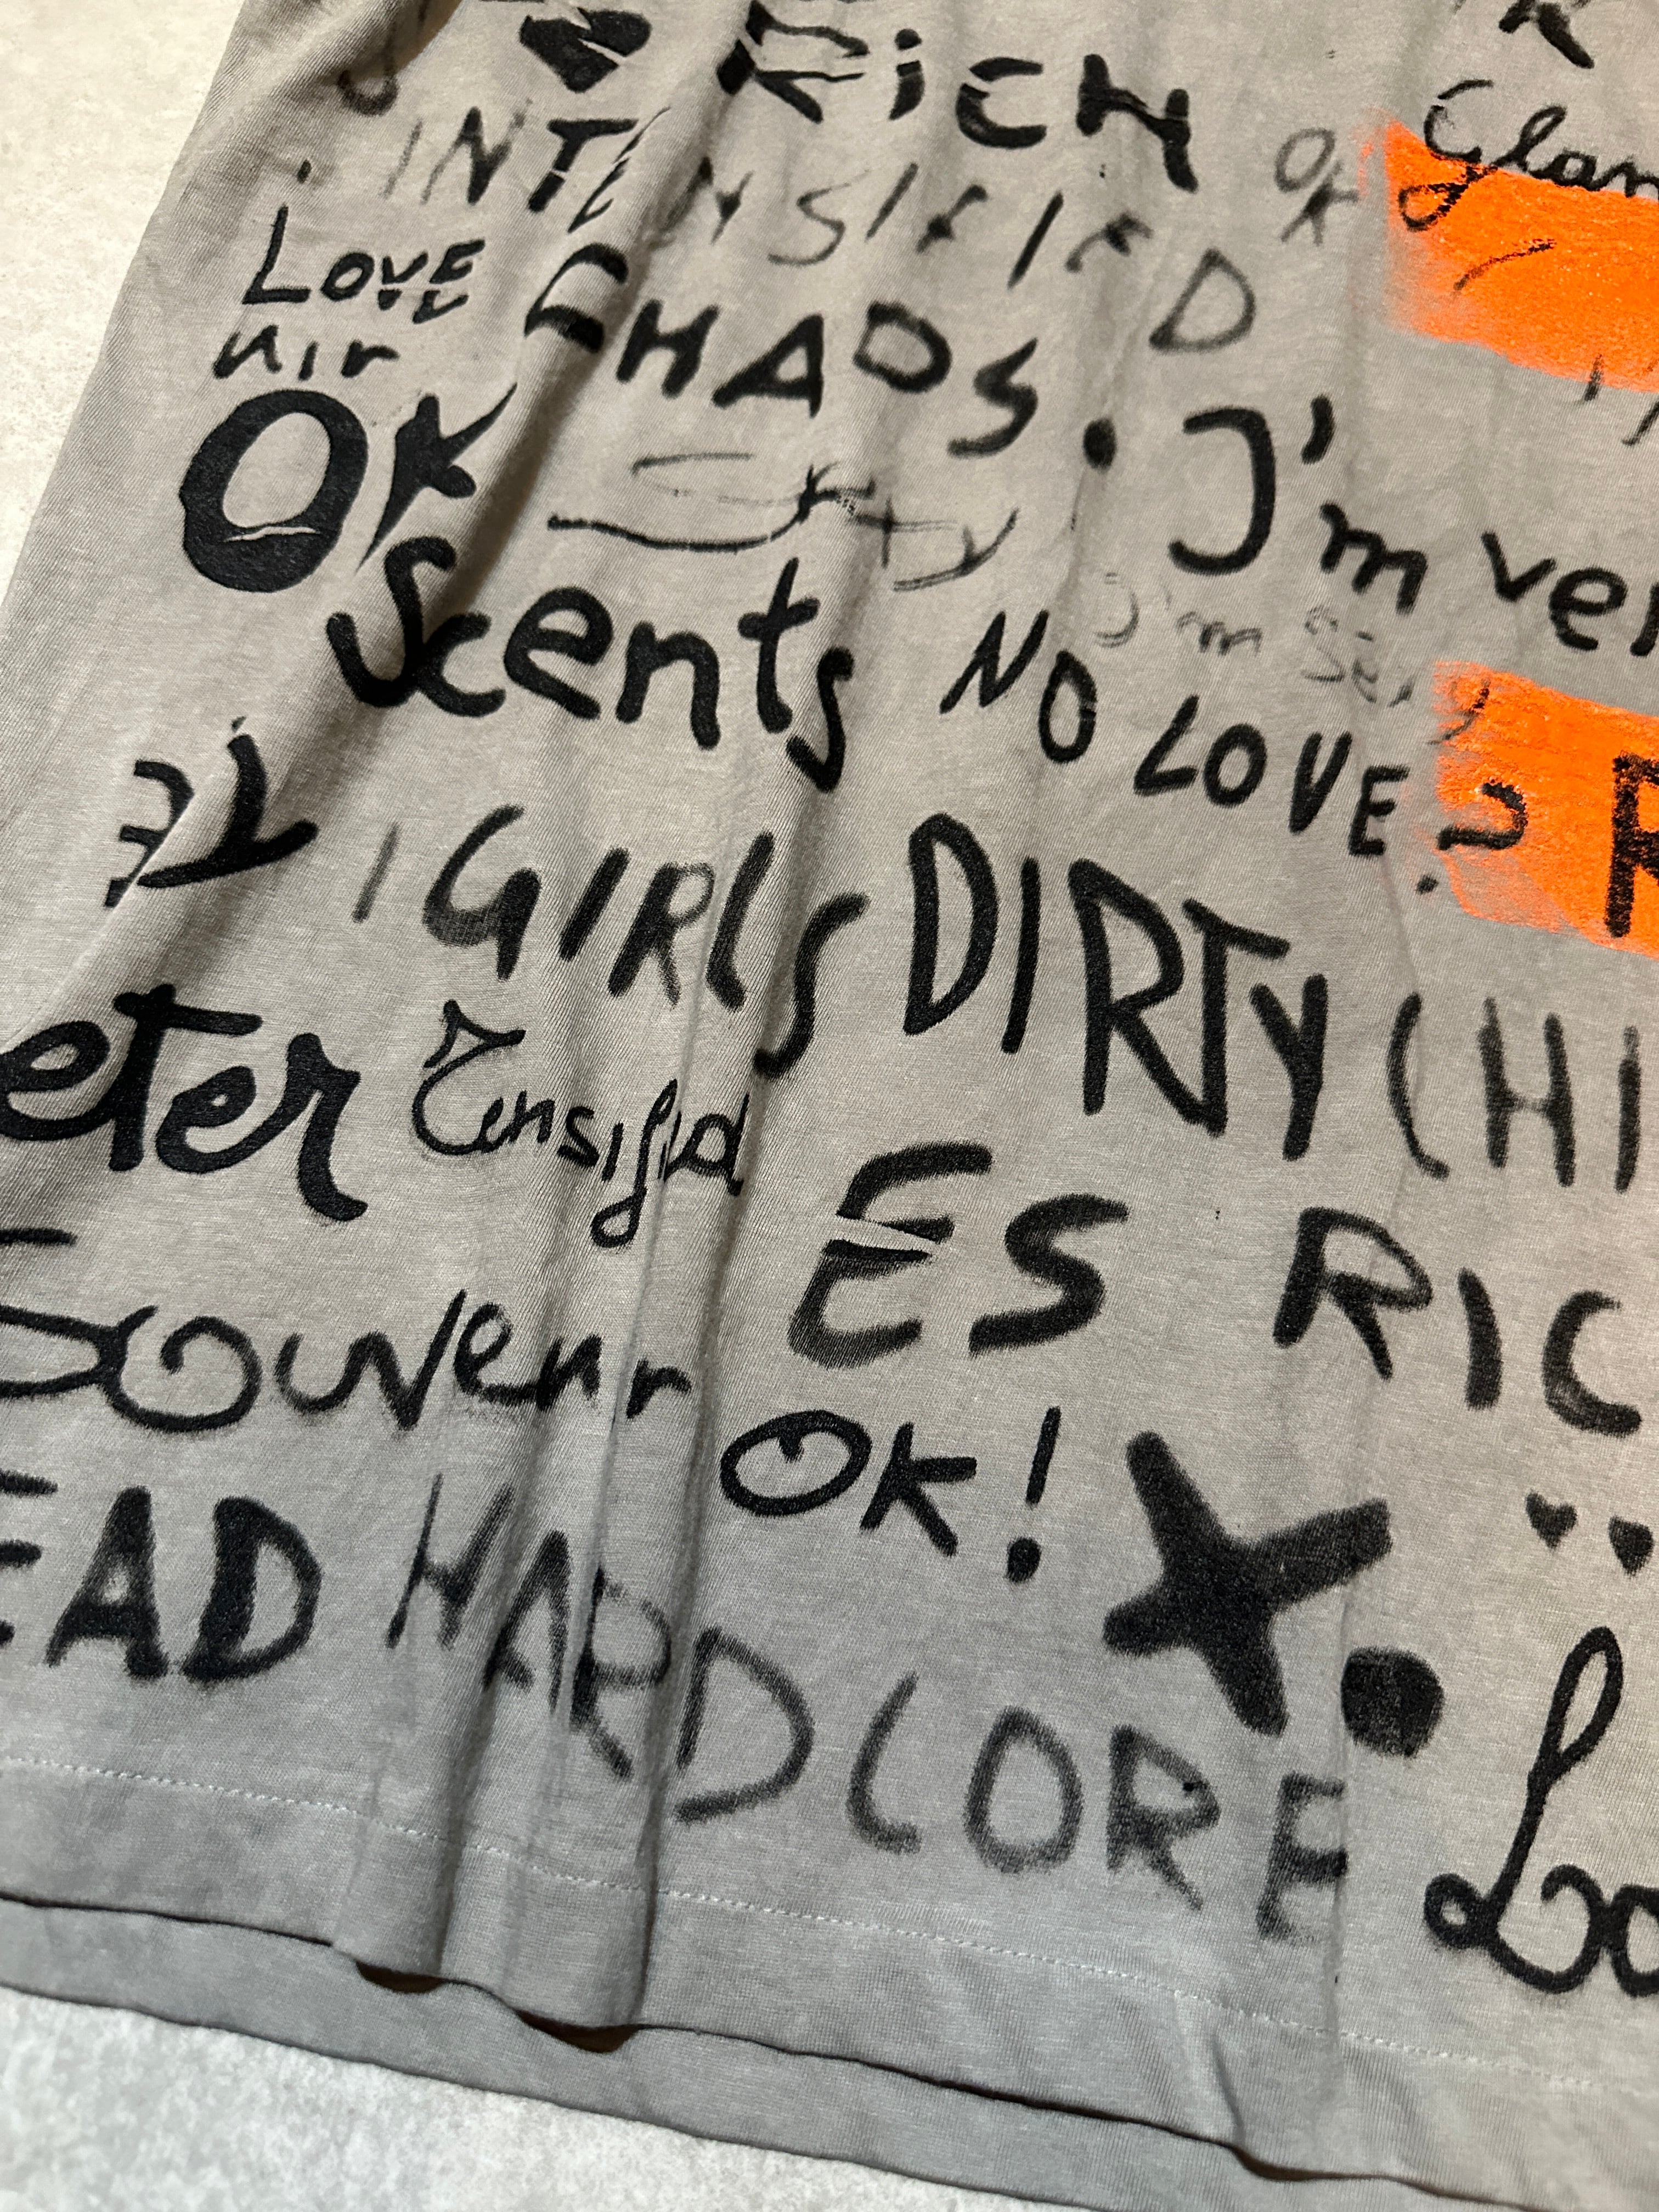 RicH
INTENSIFIED OK Glam
LOVE CHAOS.
nir
OK I'm ver
Scents NO LOVE.
I'm Sexy
GIRLS DIRTY CHI
eter
ES RIC
Souvenir
OK! X.
EAD HARDCORE
Lo